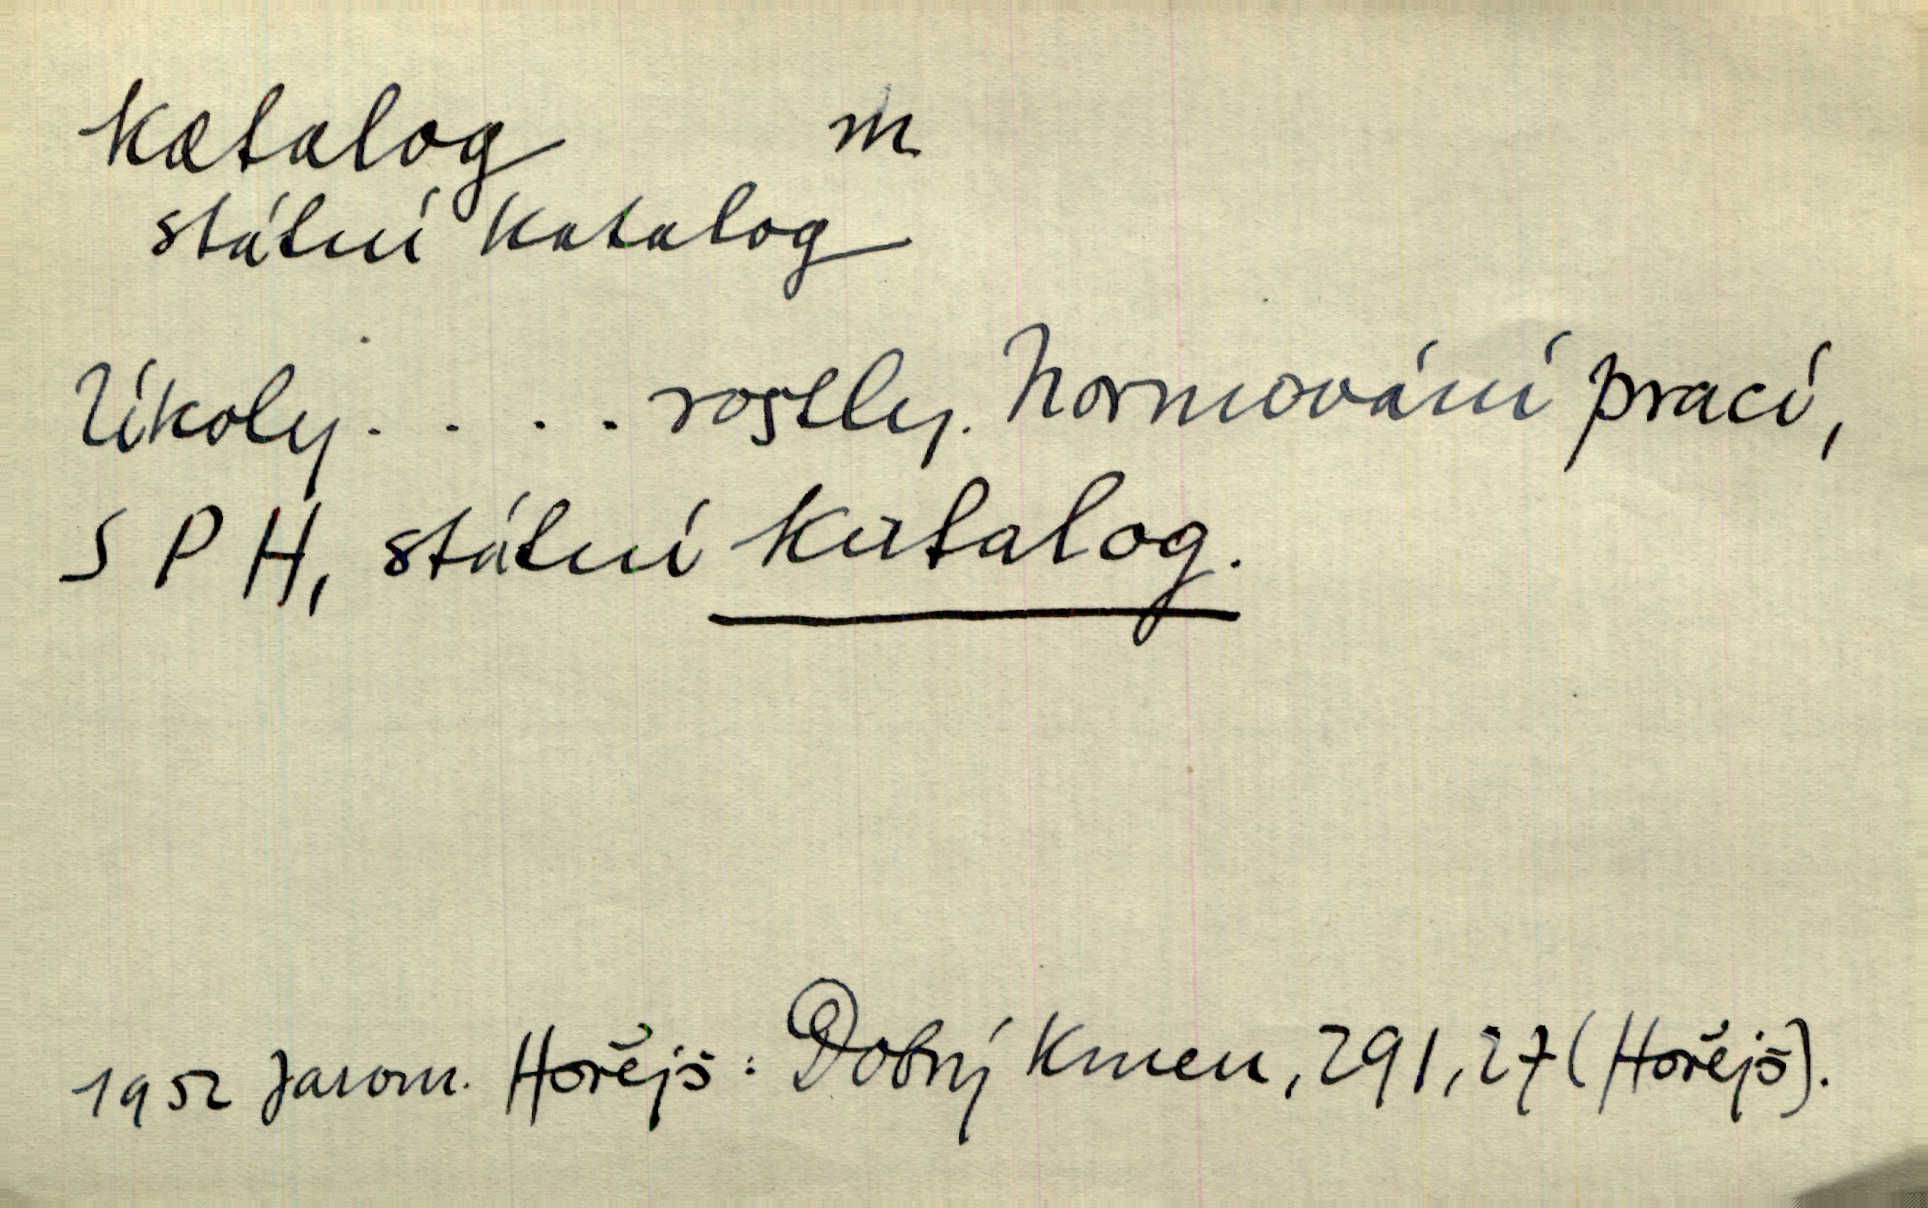 katalog m
státní katalog
Úkoly . . . . rostly. Normování prací,
S P H, státní katalog.
1952 Jarom. Hořejš: Dobrý kmen, 291, 27 (Hořejš).